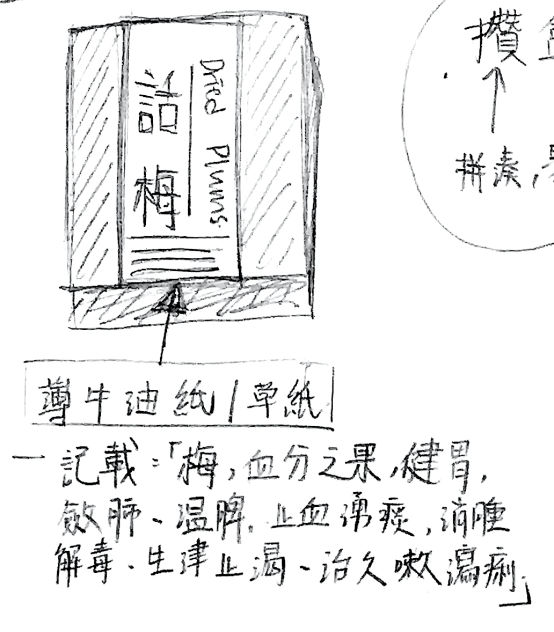 話梅
Dried Plums
攢
拼湊,
薄牛油紙/草紙
一 記載:「梅,血分之果,健胃,
斂肺、温脾,止血湧痰,消腫
解毒、生津止渴、治久嗽瀉痢.」